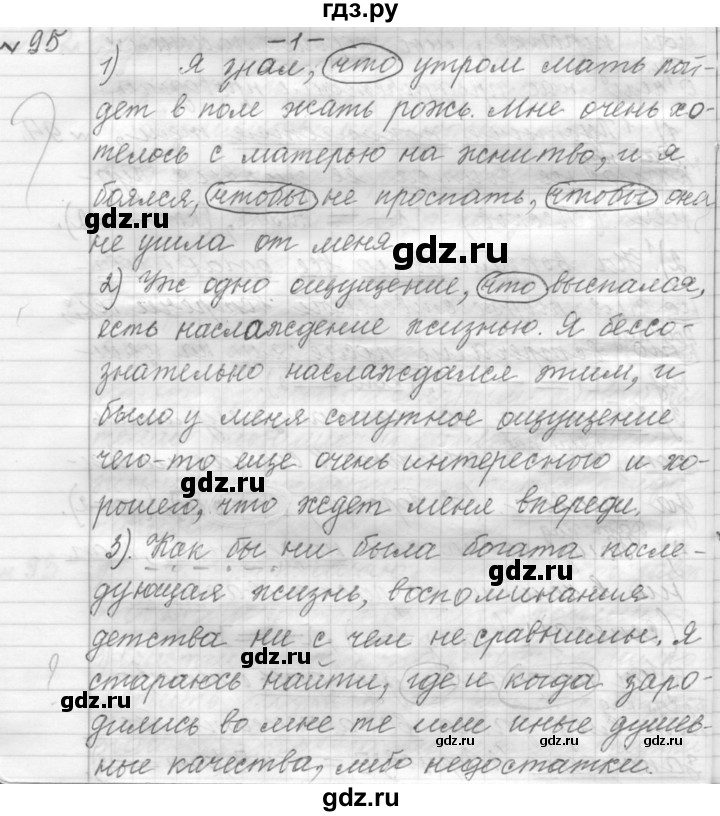 гдз.ру
№ 95
-1-
1) Я знал, что утром мать пой-
дет в поле жать рожь. Мне очень хо-
телось с матерью на жнитво, и я
боялся, чтобы не проспать, чтобы она
gdz.ru
не ушла от меня
gdz.ru
2) Уж одно ощущение, что выспалая,
есть наслаждение жизнью. Я бессо-
знательно наслаждался этим, и
было у меня смутное ощущение
чего-то еще очень интересного и хо-
gdz.ru
рошего, что ждет меня впереди.
3). Как бы ни была богата после-
gdz.ru
дующая жизнь, воспоминания
детства ни с чем не сравнимы. Я
gdz.ru
стараюсь найти, где и когда заро-
gdz.ru
дились во мне те или иные душев-
gdz.ru gdz.ru gdz.ru
ные качества, либо недостатки.
gdz.ru